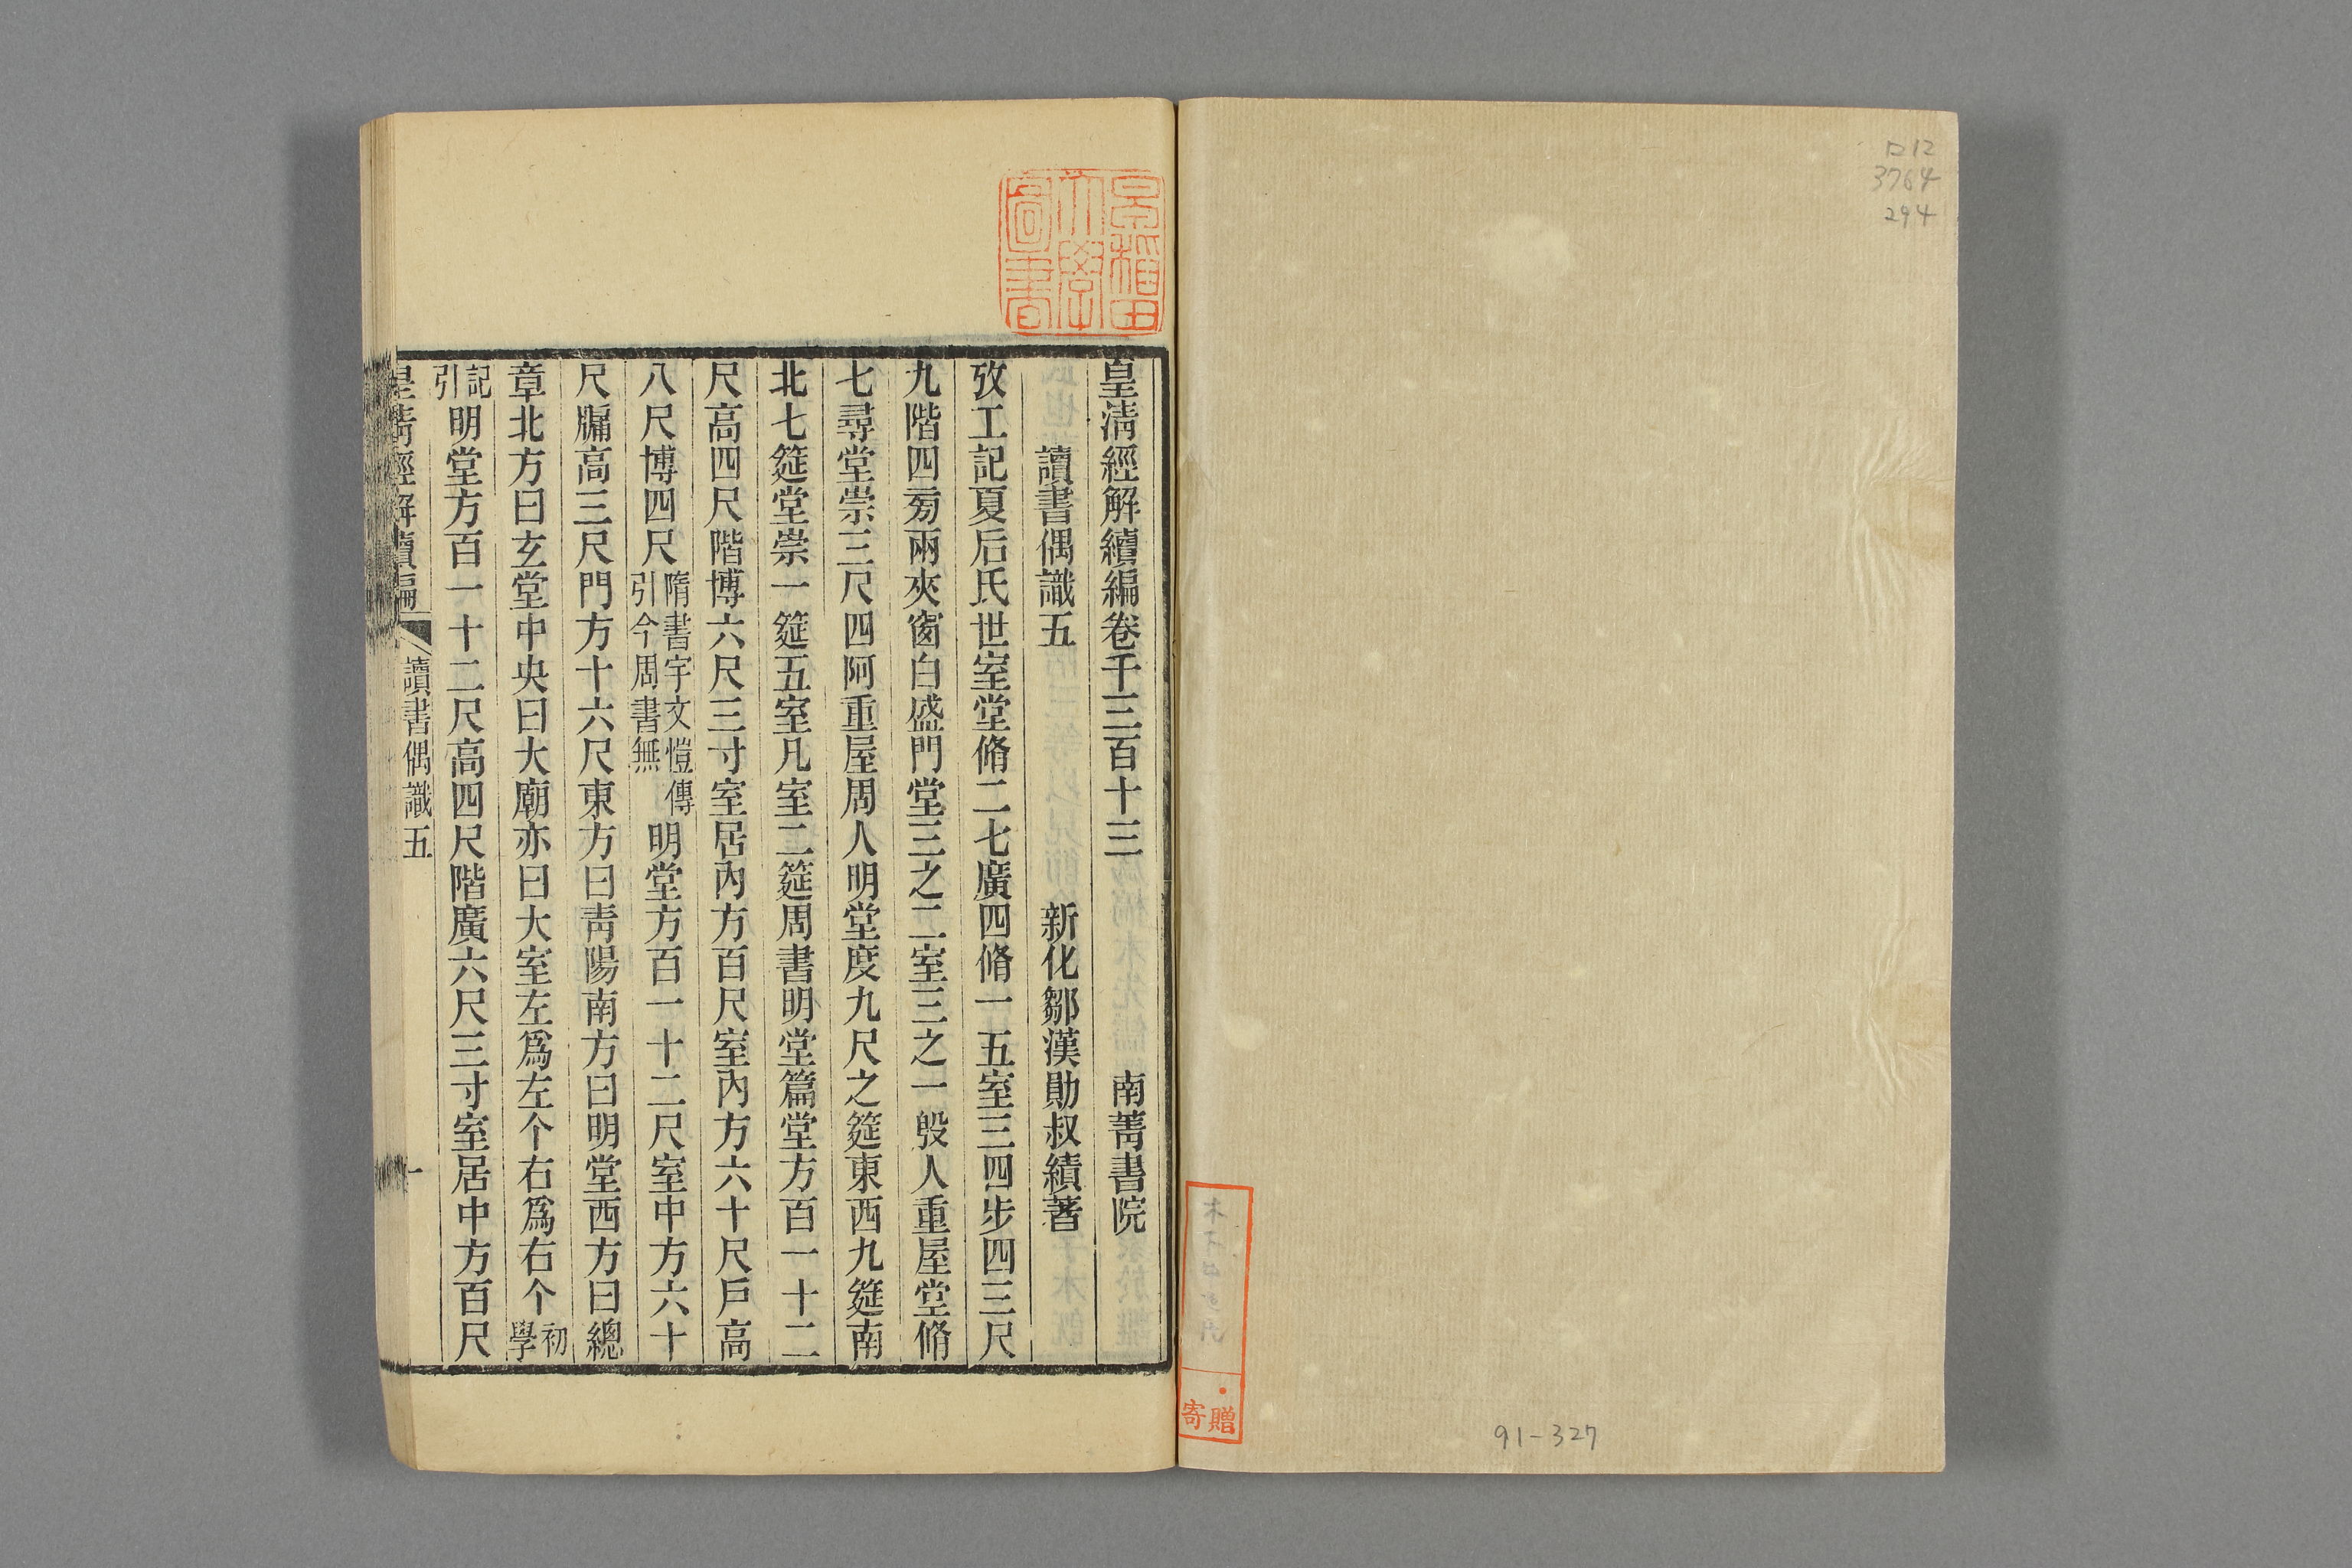 ロ12
3764
294
91-327
寄贈
早稲田大學圖書
皇清經解續編卷千三百十三　南菁書院
讀書偶識五　新化鄒漢勛叔績著
攷工記夏后氏世室堂脩二七廣四脩一五室三四步四三尺
九階四㫄兩夾窗白盛門堂三之二室三之一殷人重屋堂脩
七尋堂崇三尺四阿重屋周人明堂度九尺之筵東西九筵南
北七筵堂崇一筵五室凡室二筵周書明堂篇堂方百一十二
尺高四尺階博六尺三寸室居內方百尺室內方六十尺戶高
八尺博四尺隋書宇文愷傳引今周書無明堂方百一十二尺室中方六十
尺牖高三尺門方十六尺東方曰青陽南方曰明堂西方曰總
章北方曰玄堂中央曰大廟亦曰大室左爲左个右爲右个初學
記引明堂方百一十二尺高四尺階廣六尺三寸室居中方百尺
皇清經解續編　讀書偶識五　一